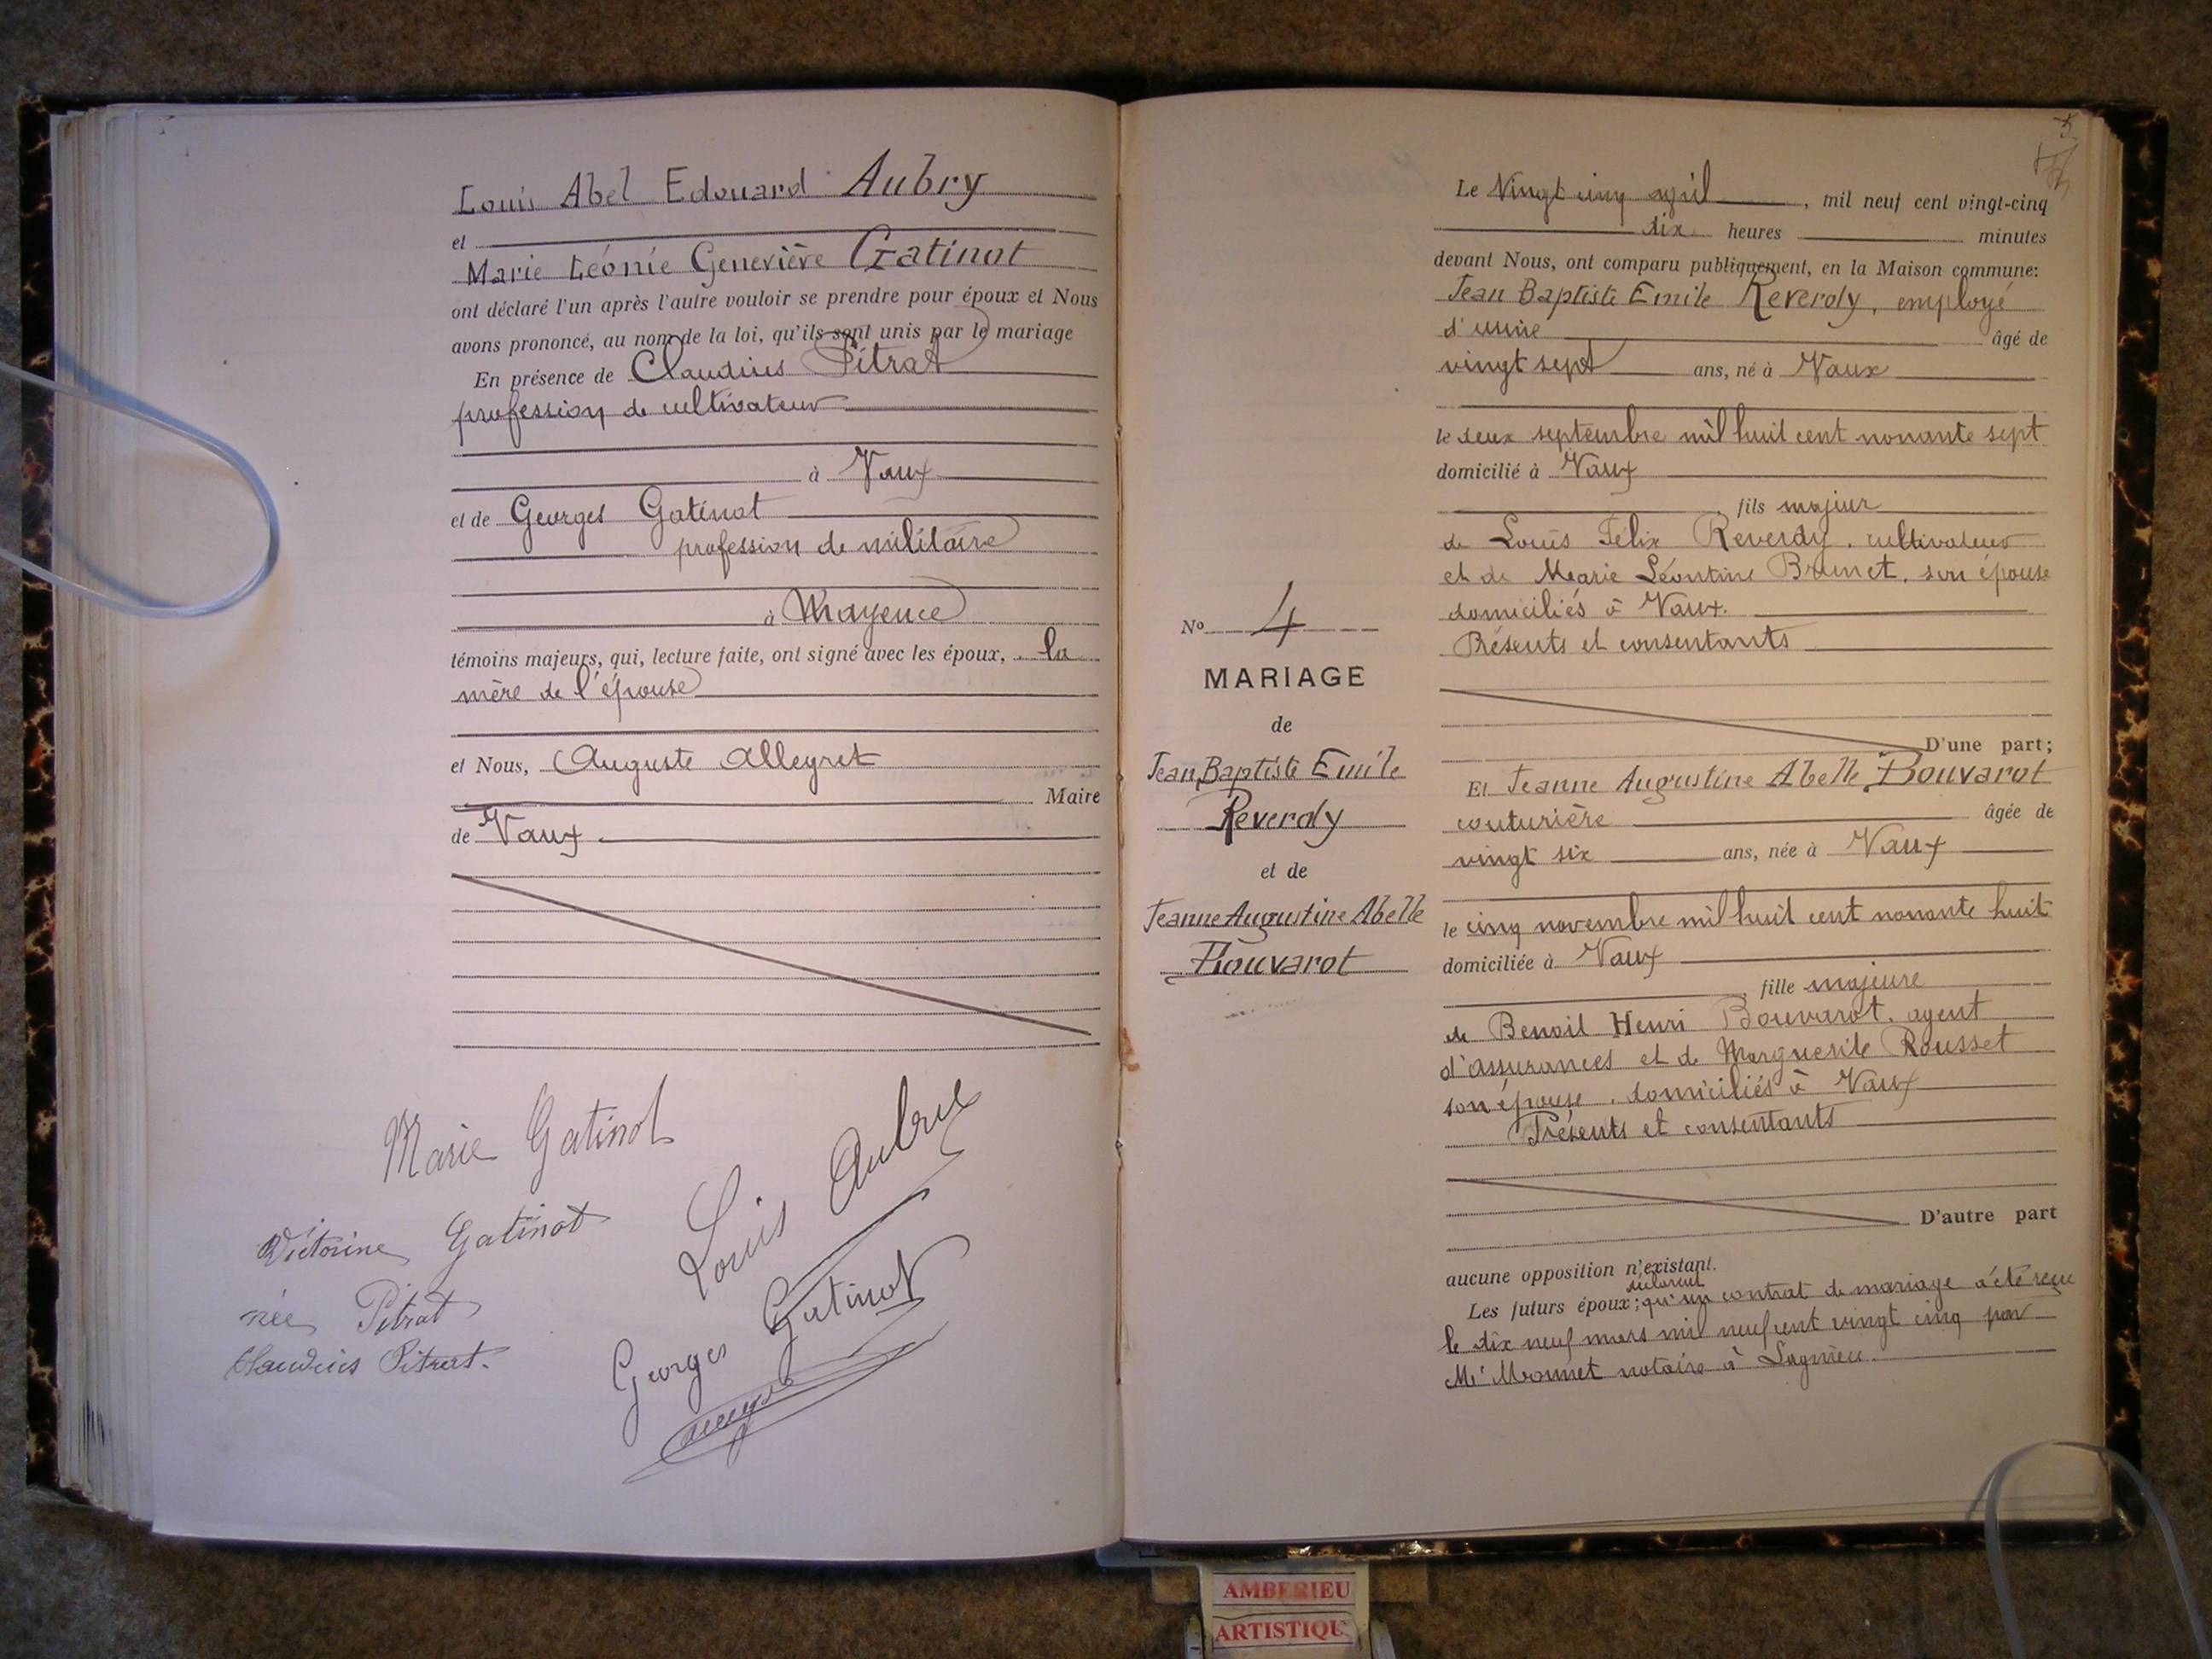 Louis Abel Edouard Aubry
et
Marie Léonie Geneviève Gatinot
ont déclaré l'un après l'autre vouloir se prendre pour époux et Nous
avons prononcé, au nom de la loi, qu'ils sont unis par le mariage
En présence de Claudius Pitrat
profession de cultivateur
à Vaux
et de Georges Gatinot
profession de militaire
à Mayence
témoins majeurs, qui, lecture faite, ont signé avec les époux, la
mère de l'épouse
et Nous, Auguste Alleyret
Maire
de Vaux
Marie Gatinot
Louis Aubry
Victorine Gatinot
née Pitrat
Claudius Pitrat.
Georges Gatinot
Le Vingt cinq avril, mil neuf cent vingt-cinq
dix heures minutes
devant Nous, ont comparu publiquement, en la Maison commune:
Jean Baptiste Emile Reverdy, employé
d'usine âgé de
vingt sept ans, né à Vaux
le deux septembre mil huit cent nonante sept
domicilié à Vaux
, fils majeur
de Louis Félix Reverdy, cultivateur
et de Marie Léontine Brunet, son épouse
domiciliés à Vaux.
Présents et consentants
D'une part;
Et Jeanne Augustine Abelle Bouvarot
couturière âgée de
vingt six ans, née à Vaux
le cinq novembre mil huit cent nonante huit
domiciliée à Vaux
, fille majeure
de Benoit Henri Bouvarot, agent
d'assurances et de Marguerite Rousset
son épouse, domiciliés à Vaux
Présents et consentants
D'autre part
aucune opposition n'existant.
déclarent
Les futurs époux; qu'un contrat de mariage a été reçu
le dix neuf mars mil neuf cent vingt cinq par
Me Monnet notaire à Lagnieu.
No 4
MARIAGE
de
Jean Baptiste Emile
Reverdy
et de
Jeanne Augustine Abelle
Bouvarot
AMBERIEU
ARTISTIQU